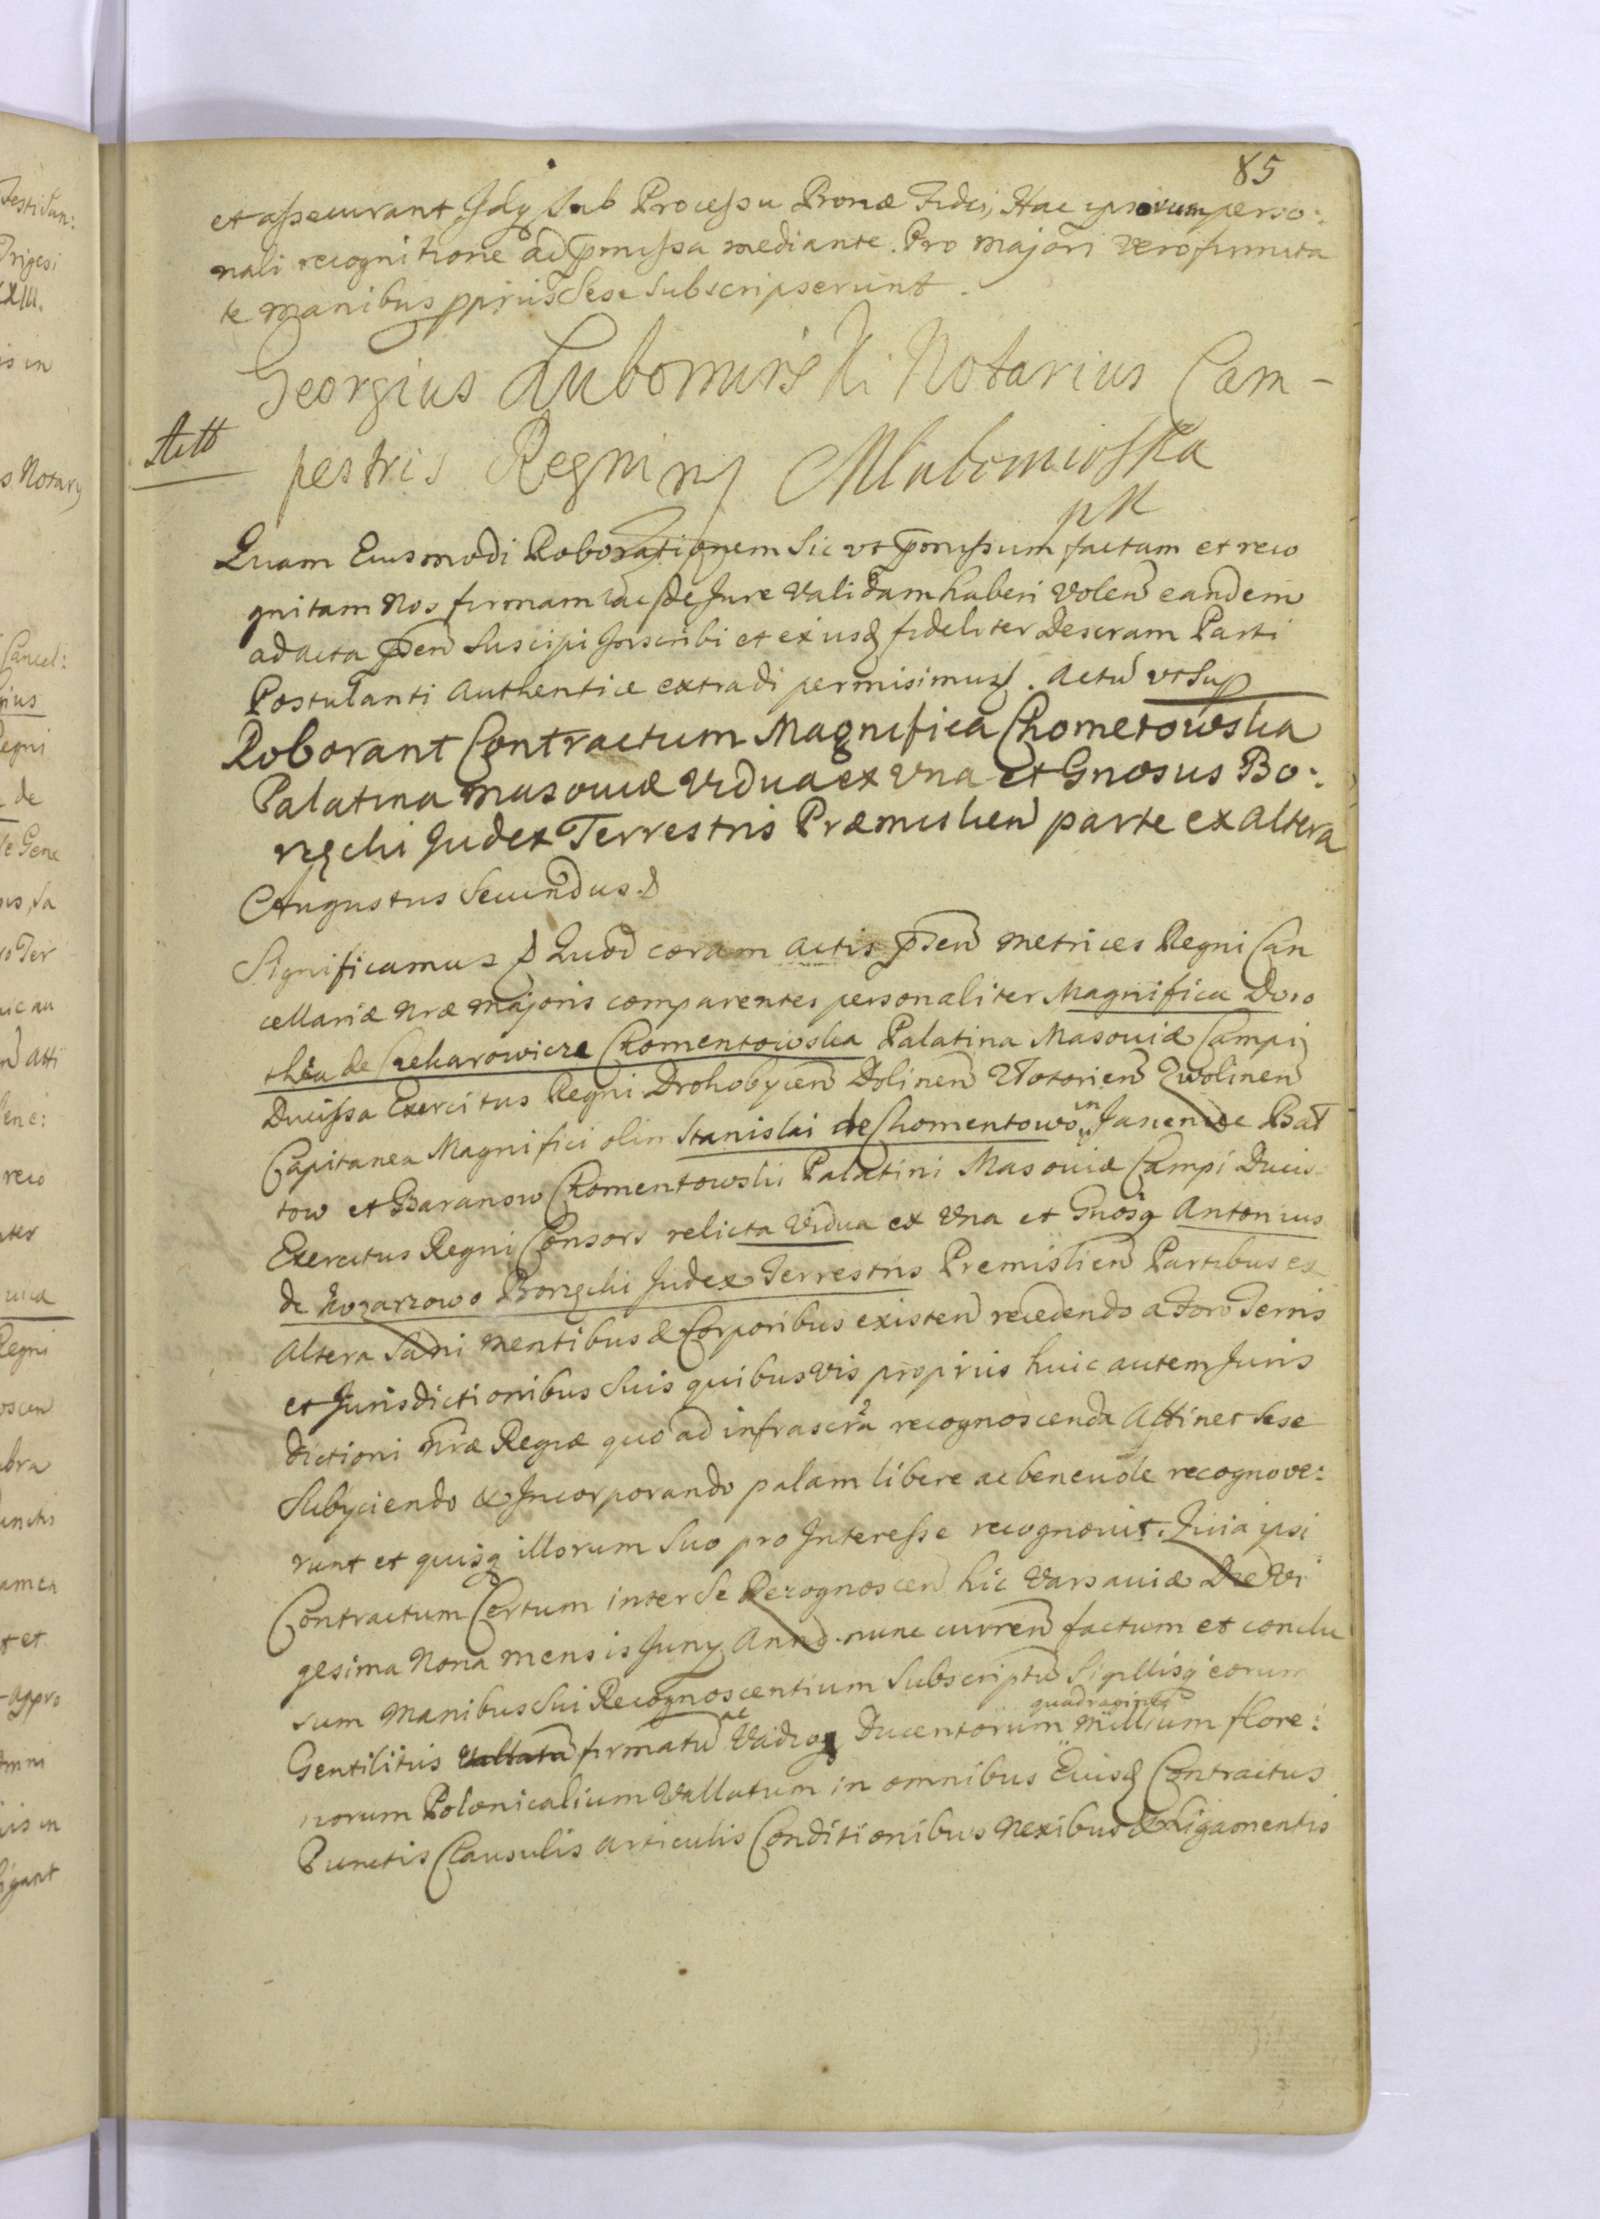 85
et assecurant Idq Sub Processu Bonæ Fidei, Hac ipsorum perso:
nali recognitione ad pmissa mediante. Pro majori vero firmita
te manibus ppriis Sese Subscripserunt.
Georgius Lubomirski Notarius Cam-
pestris Regni mp MLubomirska
Quam Eiusmodi Roborationem Sic vt pmissum factam et reco
gnitam Nos firmam ac de Jure Validam haberi Volen eandem
ad acta psen Suscipi Inscribi et ex iisd fideliter Descram Parti
Postulanti Authentice extradi permisimus. Actū vt Sup
Roborant Contractum Magnifica Chometowska
Palatina Masouiæ Vidua ex Vna et Gnosus Bo:
rzęcki Judex Terrestris Præmislien parte ex Altera
Augustus Secundus
Significamus Quod coram actis psen Metrices Regni Can
cellariæ Nræ Majoris comparentes personaliter Magnifica Doro
thea de Chomentowska Palatina Masouiæ Campi
Ducissa Exercitus Regni Drohobycen Dolinen Zwolinen
Capitanea Magnifici olim Stanislai de Chomentowo in Jasieniec Bał
tow et Baranow Chomentowski Palatini Masouiæ Campi Ducis
Exercitus Regni Consors relicta Vidua ex Vna et Gnosq Antonius
de Borzęcki Judex Terrestris Premislien Partibus ex
Altera Sani mentibus & Corporibus existen recedendo a Foro Terris
et Jurisdictionibus Suis quibusvis propriis huic autem Juris
dictioni nræ Regiæ quo ad infrascra recognoscenda Attinet Sese
Subijciendo & Incorporando palam libere ac beneuole recognove:
runt et quisq illorum Suo pro Interesse recognouit. Quia ipsi
Contractum Certum inter Se Recognoscen hic Varsauiæ Die Vi
gesima Nona mensis Juny Anno nunc curren factum et conclu
sum Manibus Sui Recognoscentium Subscriptū Sigillisq eorum
Gentilitiis firmatū ac Vadioq Ducentorum quadraginta Millium flore:
norum Polonicalium Vallatum in omnibus Eiusd Contractus
Punctis Clausulis articulis Conditionibus Nexibus & Ligamentis